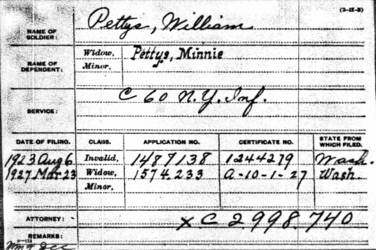 (3-15-3)
NAME OF SOLDIER: Pettys, William
NAME OF DEPENDENT: Widow, Pettys, Minnie
Minor,
SERVICE: C 60 N.Y. Inf.
DATE OF FILING. CLASS. APPLICATION NO. CERTIFICATE NO. STATE FROM WHICH FILED.
1923 Aug 6 Invalid, 1487138 1244279 Wash.
1927 Mar 23 Widow, 1574233 A-10-1-27 Wash
Minor,
ATTORNEY: XC 2998740
REMARKS: